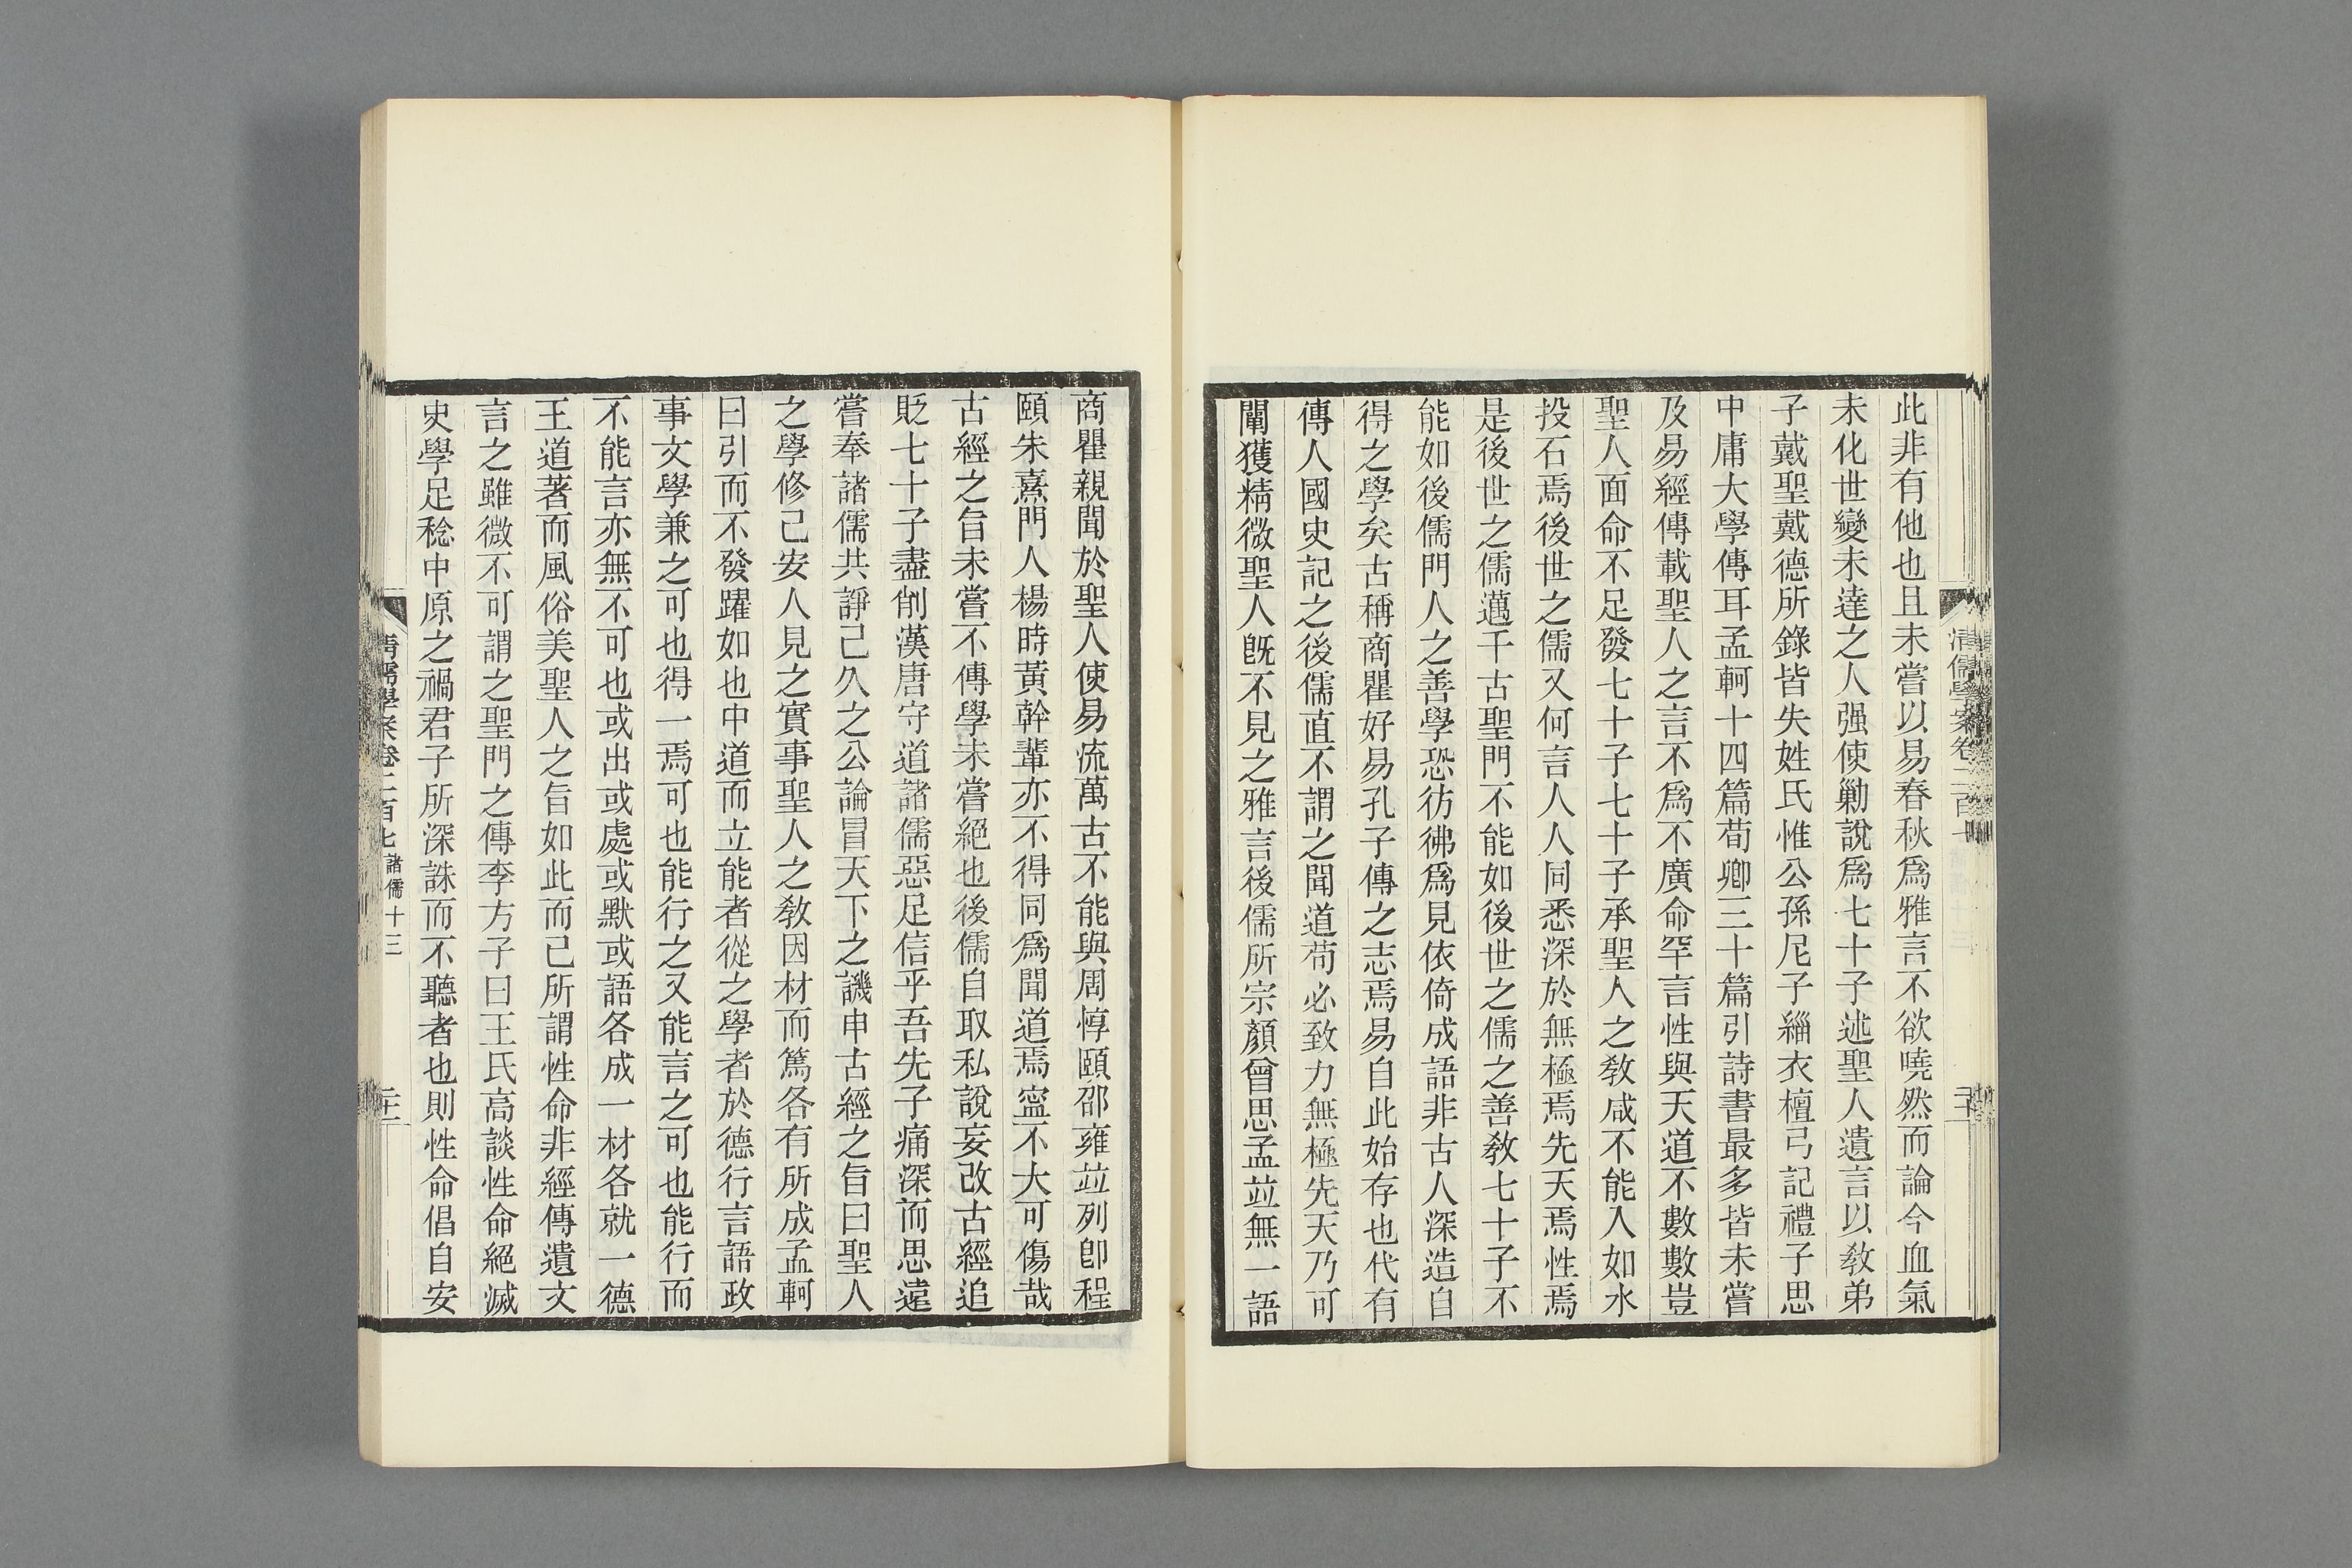 此非有他也且未嘗以易春秋爲雅言不欲曉然而論今血氣
未化世變未達之人强使勦說爲七十子述聖人遺言以敎弟
子戴聖戴德所錄皆失姓氏惟公孫尼子緇衣檀弓記禮子思
中庸大學傳耳孟軻十四篇荀卿三十篇引詩書最多皆未嘗
及易經傳載聖人之言不爲不廣命罕言性與天道不數數豈
聖人面命不足發七十子七十子承聖人之敎咸不能入如水
投石焉後世之儒又何言人人同悉深於無極焉先天焉性焉
是後世之儒邁千古聖門不能如後世之儒之善敎七十子不
能如後儒門人之善學恐彷彿爲見依倚成語非古人深造自
得之學矣古稱商瞿好易孔子傳之志焉易自此始存也代有
傳人國史記之後儒直不謂之聞道苟必致力無極先天乃可
闡獲精微聖人旣不見之雅言後儒所宗顏曾思孟竝無一語
商瞿親聞於聖人使易流萬古不能與周惇頤邵雍竝列卽程
頤朱熹門人楊時黃幹輩亦不得同爲聞道焉寍不大可傷哉
古經之旨未嘗不傳學未嘗絕也後儒自取私說妄改古經追
貶七十子盡削漢唐守道諸儒惡足信乎吾先子痛深而思遠
嘗奉諸儒共諍已久之公論冒天下之譏申古經之旨曰聖人
之學修己安人見之實事聖人之敎因材而篤各有所成孟軻
曰引而不發躍如也中道而立能者從之學者於德行言語政
事文學兼之可也得一焉可也能行之又能言之可也能行而
不能言亦無不可也或出或處或默或語各成一材各就一德
王道著而風俗美聖人之旨如此而已所謂性命非經傳遺文
言之雖微不可謂之聖門之傳李方子曰王氏高談性命絕滅
史學足稔中原之禍君子所深誅而不聽者也則性命倡自安
清儒學案卷二百七 諸儒十三